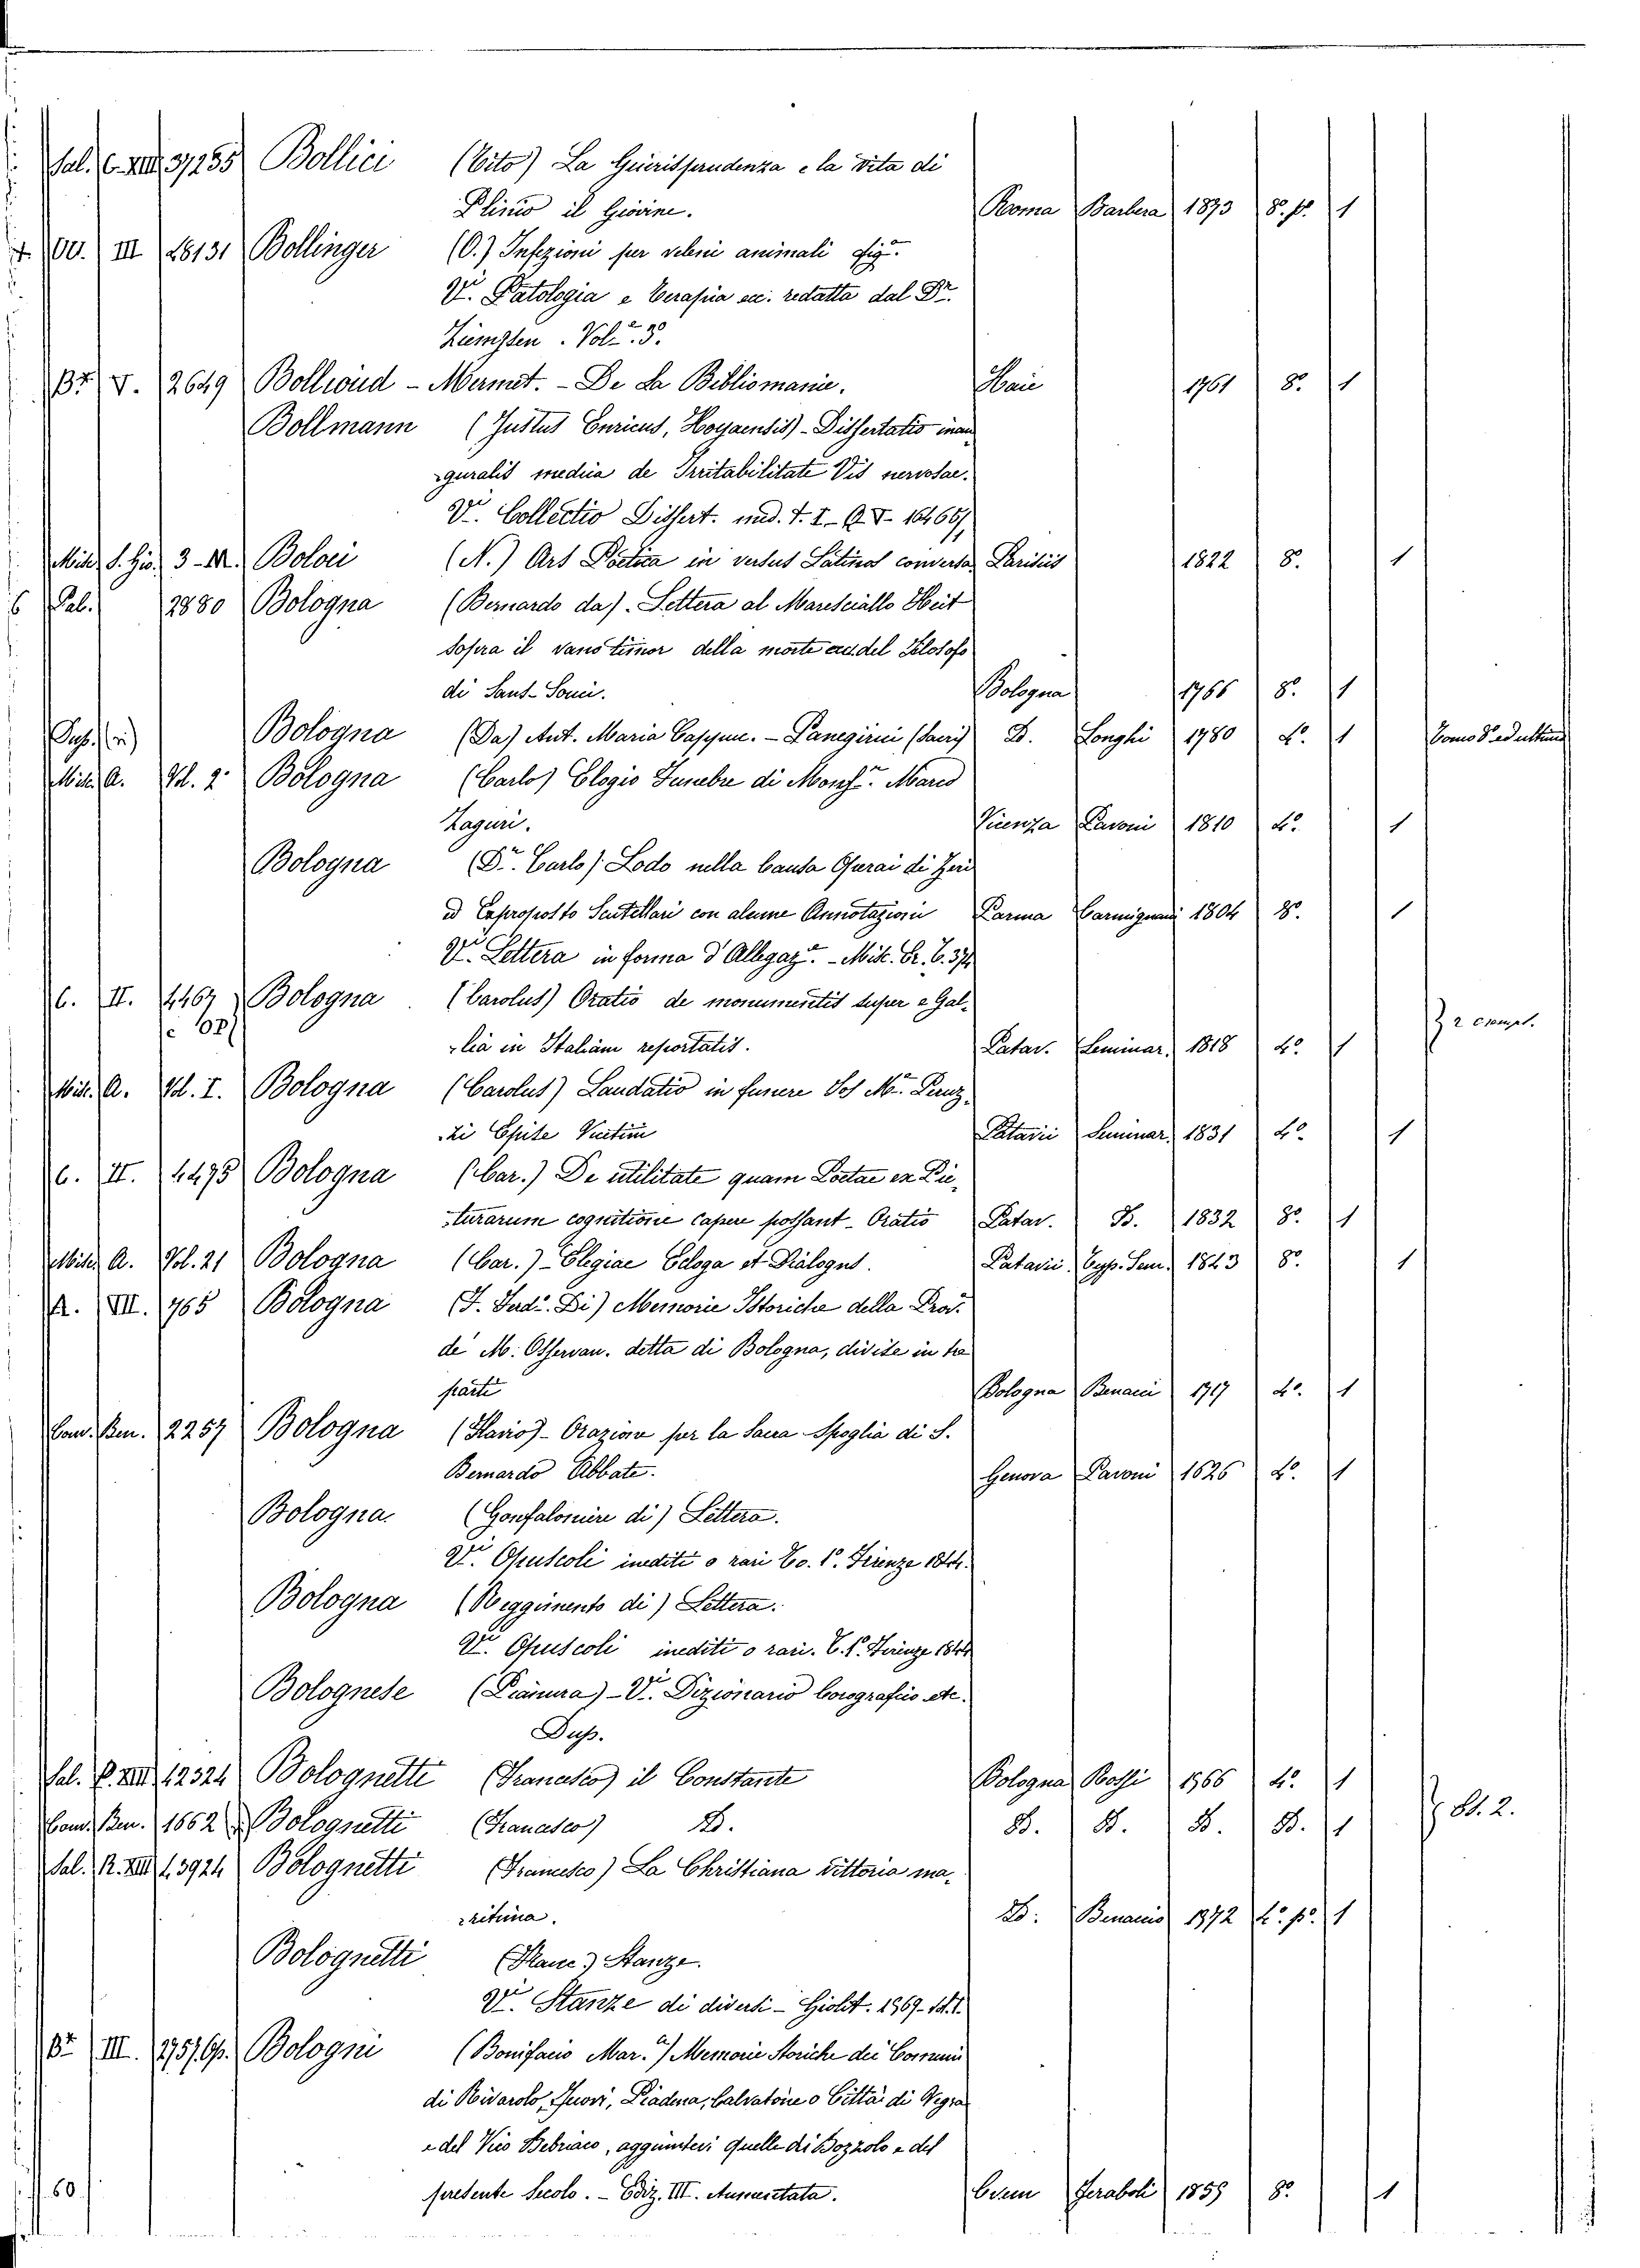 Sal. C. XIII 37255 Bollici (Vito) La Giurisprudenza e la vita di
Plinio il Giovine. Roma Barbera 1873 8.º p. 1
OO. III 28131 Bollinger (O.) Infezioni per veleni animali fig.
V. Patologia e Terapia ecc. redatta dal Dr.
Ziemssen. Vol. 3.º
Br. V. 2649 Bollioud - Mermet. - De La Bibliomanie. Haie 1761 8.º 1
Bollmann (Justus Enricus, Hoyaensis) - Dissertatio inau
guralis medica de Irritabilitate Vis nervosae.
V. Collectio Dissert. med. T. I - Q. V - 16465/1
Misc. S. Gio. 3 - M. Boloci (N.) Ars Poetica in versus Latinos conversa Parisiis 1822 8. 1
6 Pal. 2880 Bologna (Bernardo da). Lettera al Maresciallo Keit
sopra il vano timor della morte ecc. del Filosofo
di Sans-Souci. Bologna 1766 8.º 1
Dup. Bologna (Da) Ant. Maria Cappuc. - Panegirici (sacri) D. Longhi 1780 4.º 1
Misc. A. Vol. 2.º Bologna (Carlo) Elogio Funebre di Monsr. Marco
Zaguri. Vicenza Paroni 1810 4.º 1
Bologna (Dr. Carlo) Lodo nella causa di Zeri
ed Exproposto Scutellari con alcune Annotazioni Parma Carmignani 1804 8.º 1
V. Lettera in forma d'Allegaz. - Misc. Er. C. 37/2
C. II. 4467 Bologna (Carolus) Oratio de monumentis super e Gal
e 68/
lia in Italiam reportatis. Patav. Seminar. 1818 4.º 1 2 exempl.
Misc. A. Vol. I. Bologna (Carolus) Laudatio in funere Jos M. Peruz
zi Epise Vicetim Patavii Seminar. 1831 4.º 1
C. II. 4495 Bologna (Car.) De utilitate quam Poetae ex Pic
turarum cognitione capere possant - Oratio Patav. D. 1832 8.º 1
Misc. A. Vol. 21 Bologna (Car.) - Elegiae Ecloga et Dialogus. Patavii. Typ. Sem. 1843 8.º 1
A. VII. 765 Bologna (F. Ferd. Di) Memorie Istoriche della Prov.
de M. Osservan. detta di Bologna, divise in tre
parti Bologna Benacci 1717 4.º 1
Com. Ben. 2257 Bologna (Flavio) - Orazione per la Sacra Spoglia di S.
Bernardo Abbate. Genova Pavoni 1626 4.º 1
Bologna. (Gonfaloniere di) Lettera.
V. Opuscoli inediti o rari To. 1.º Firenze 1844.
Bologna (Reggimento di) Lettera.
V. Opuscoli inediti o rari. T. 1.º Firenze 1844
Bolognese (Pianura) - V. Dizionario Corografico etc.
Dup.
Sal. P. XIII 12324 Bolognetti (Francesco) il Constante Bologna Rossi 1566 4.º 1
Com. Ben. 1662 Bolognetti (Francesco) D. D. D. D. D. 1
Sal. R. XIII 13924 Bolognetti (Francesco) La Christiana Vittoria ma
ritima. D. Benacio 1572 4.º p. 1
Bolognetti (Franc.) Stanze.
V. Stanze di diversi - Giolit. 1569 - Vol. 1
Br. III. 2757 Op. Bologni (Bonifacio Mar.a) Memorie Storiche dei Comuni
di Rivarolo, Fuori, Piadena, Calvatone o Città di Vegra
e del Vico Bebriaco, aggiuntevi quelle di Bozzolo e del
presente Secolo. - Ediz. III. Aumentata. Crem Feraboli 1859 8.º 1
60